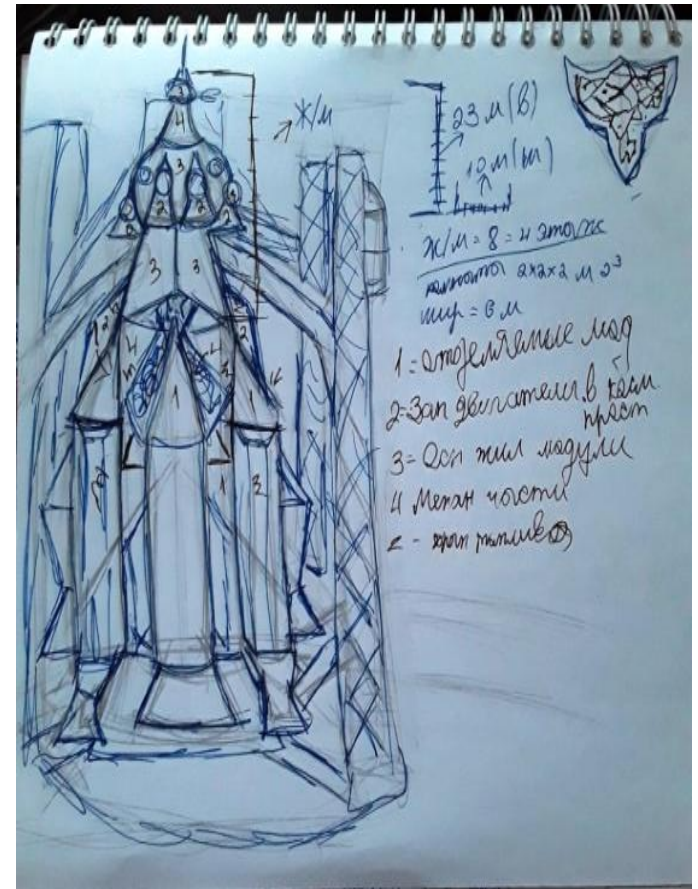 ж/м
23 м (в)
10 м (ш)
ж/м = 8 = 4 этаж
комната 2x2x2 м
шир = 6 м
1 = отделяемые мод
2 = Зап двигатели в косм
прост
3 = Осн жил модули
4 Механ части
- хран топлива
4
3
3
3
1